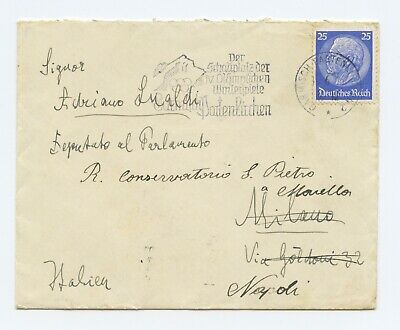 Der
Schauplatz der
IV. Olympischen
Winterspiele
Garmisch
Partenkirchen
25 25
Deutsches Reich
Signor
Adriano Lualdi
Deputato al Parlamento
R. Conservatorio S. Pietro
a Maiella
Milano
Via Goldoni 32
Italien
Napoli